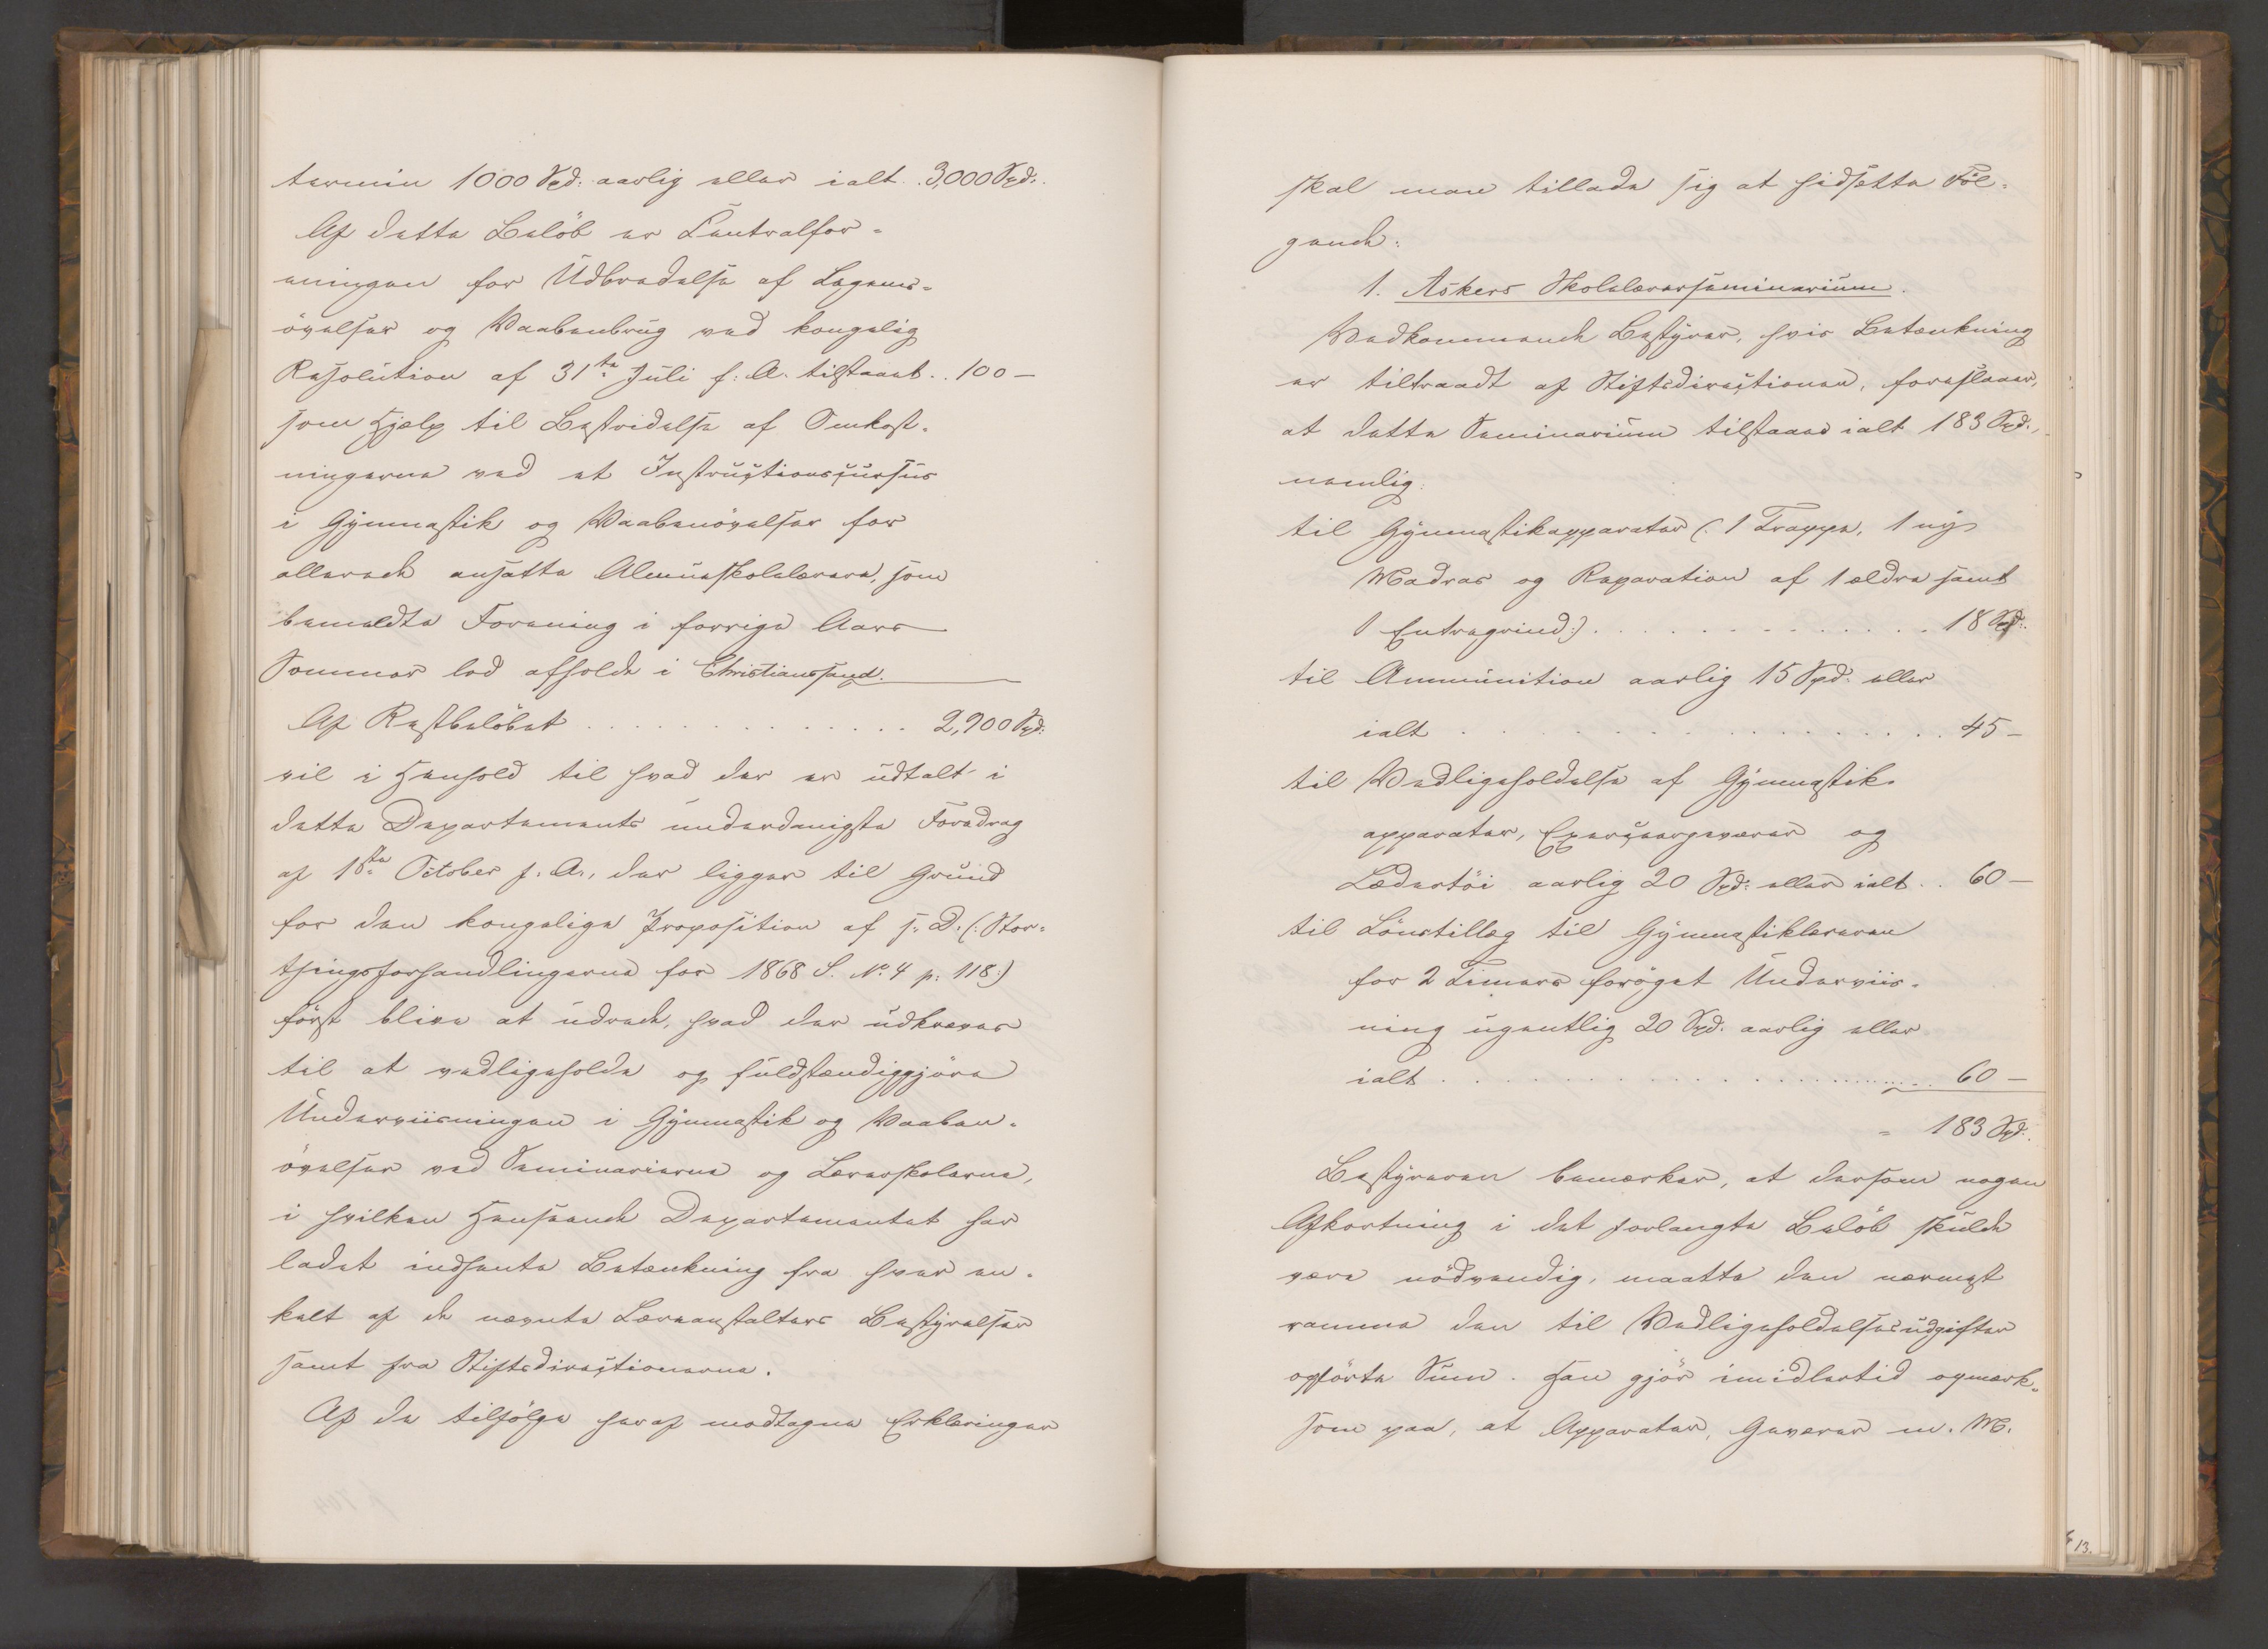 termin 1000 Spd: aarlig eller ialt . 3,000 Spd:.
Af dette Belöb er Centralfor-
eningen for Udbredelse af Legems-
övelser og Vaabenbrug ved kongelig
Resolution af 31te Juli f: A. tilstaaet . . 100 —
som Hjælp til Bestridelse af Omkost-
ningerne ved et Instructionscursus
i Gymnastik og Vaabenövelser for
allerede ansatte Almueskolelærere, som
bemeldte Forening i forrige Aars
Sommer lod afholde i Christianssand.
Af Restbelöbet . . . . . . . . . . . . . 2,900 Spd:
vil i Henhold til hvad der er udtalt i
dette Departements underdanigste Foredrag
af 18de October f. A., der ligger til Grund
for den kongelige Proposition af s. D. (: Stor-
thingsforhandlingerne for 1868 S. No 4 p. 118 :)
först blive at udrede, hvad der udkræves
til at vedligeholde og fuldstændiggjöre
Underviisningen i Gymnastik og Vaaben-
övelser ved Seminarierne og Lærerskolerne,
i hvilken Henseende Departementet har
ladet indhente Betænkning fra hver en-
kelt af de nævnte Læreanstalters Bestyrelser
samt fra Stiftsdirectionerne.
Af de tilfölge heraf modtagne Erklæringer
skal man tillade sig at hidsette Föl-
gende:
1. Askers Skolelærerseminarium.
Vedkommende Bestyrer, hvis Betænkning
er tiltraadt af Stiftsdirectionen, foreslaaer,
at dette Seminarium tilstaaes ialt 183 Spd.,
nemlig:
til Gymnastikapparater (: 1 Trappe, 1 ny
Madras og Reparation af 1 ældre samt
1 Entregrind :) . . . . . . . . . . . . . . 18 Spd:
til Ammunition aarlig 15 Spd: eller
ialt . . . . . . . . . . . . . . . . . . . 45 —
til Vedligeholdelse af Gymnastik-
apparater, Exerceergeværer og
Lædertöi aarlig 20 Spd: eller ialt . . 60 —
til Lönstillæg til Gymnastiklæreren
for 2 Timers foröget Underviis-
ning ugentlig 20 Spd. aarlig eller
ialt . . . . . . . . . . . . . . . . . . . 60 —
= 183 Spd:
Bestyreren bemærker, at dersom nogen
Afkortning i det forlangte Belöb skulde
være nödvendig, maatte den nærmest
ramme den til Vedligeholdelsesudgifter
opförte Sum. Han gjör imidlertid opmærk-
som paa, at Apparater, Geværer m. M.
13.